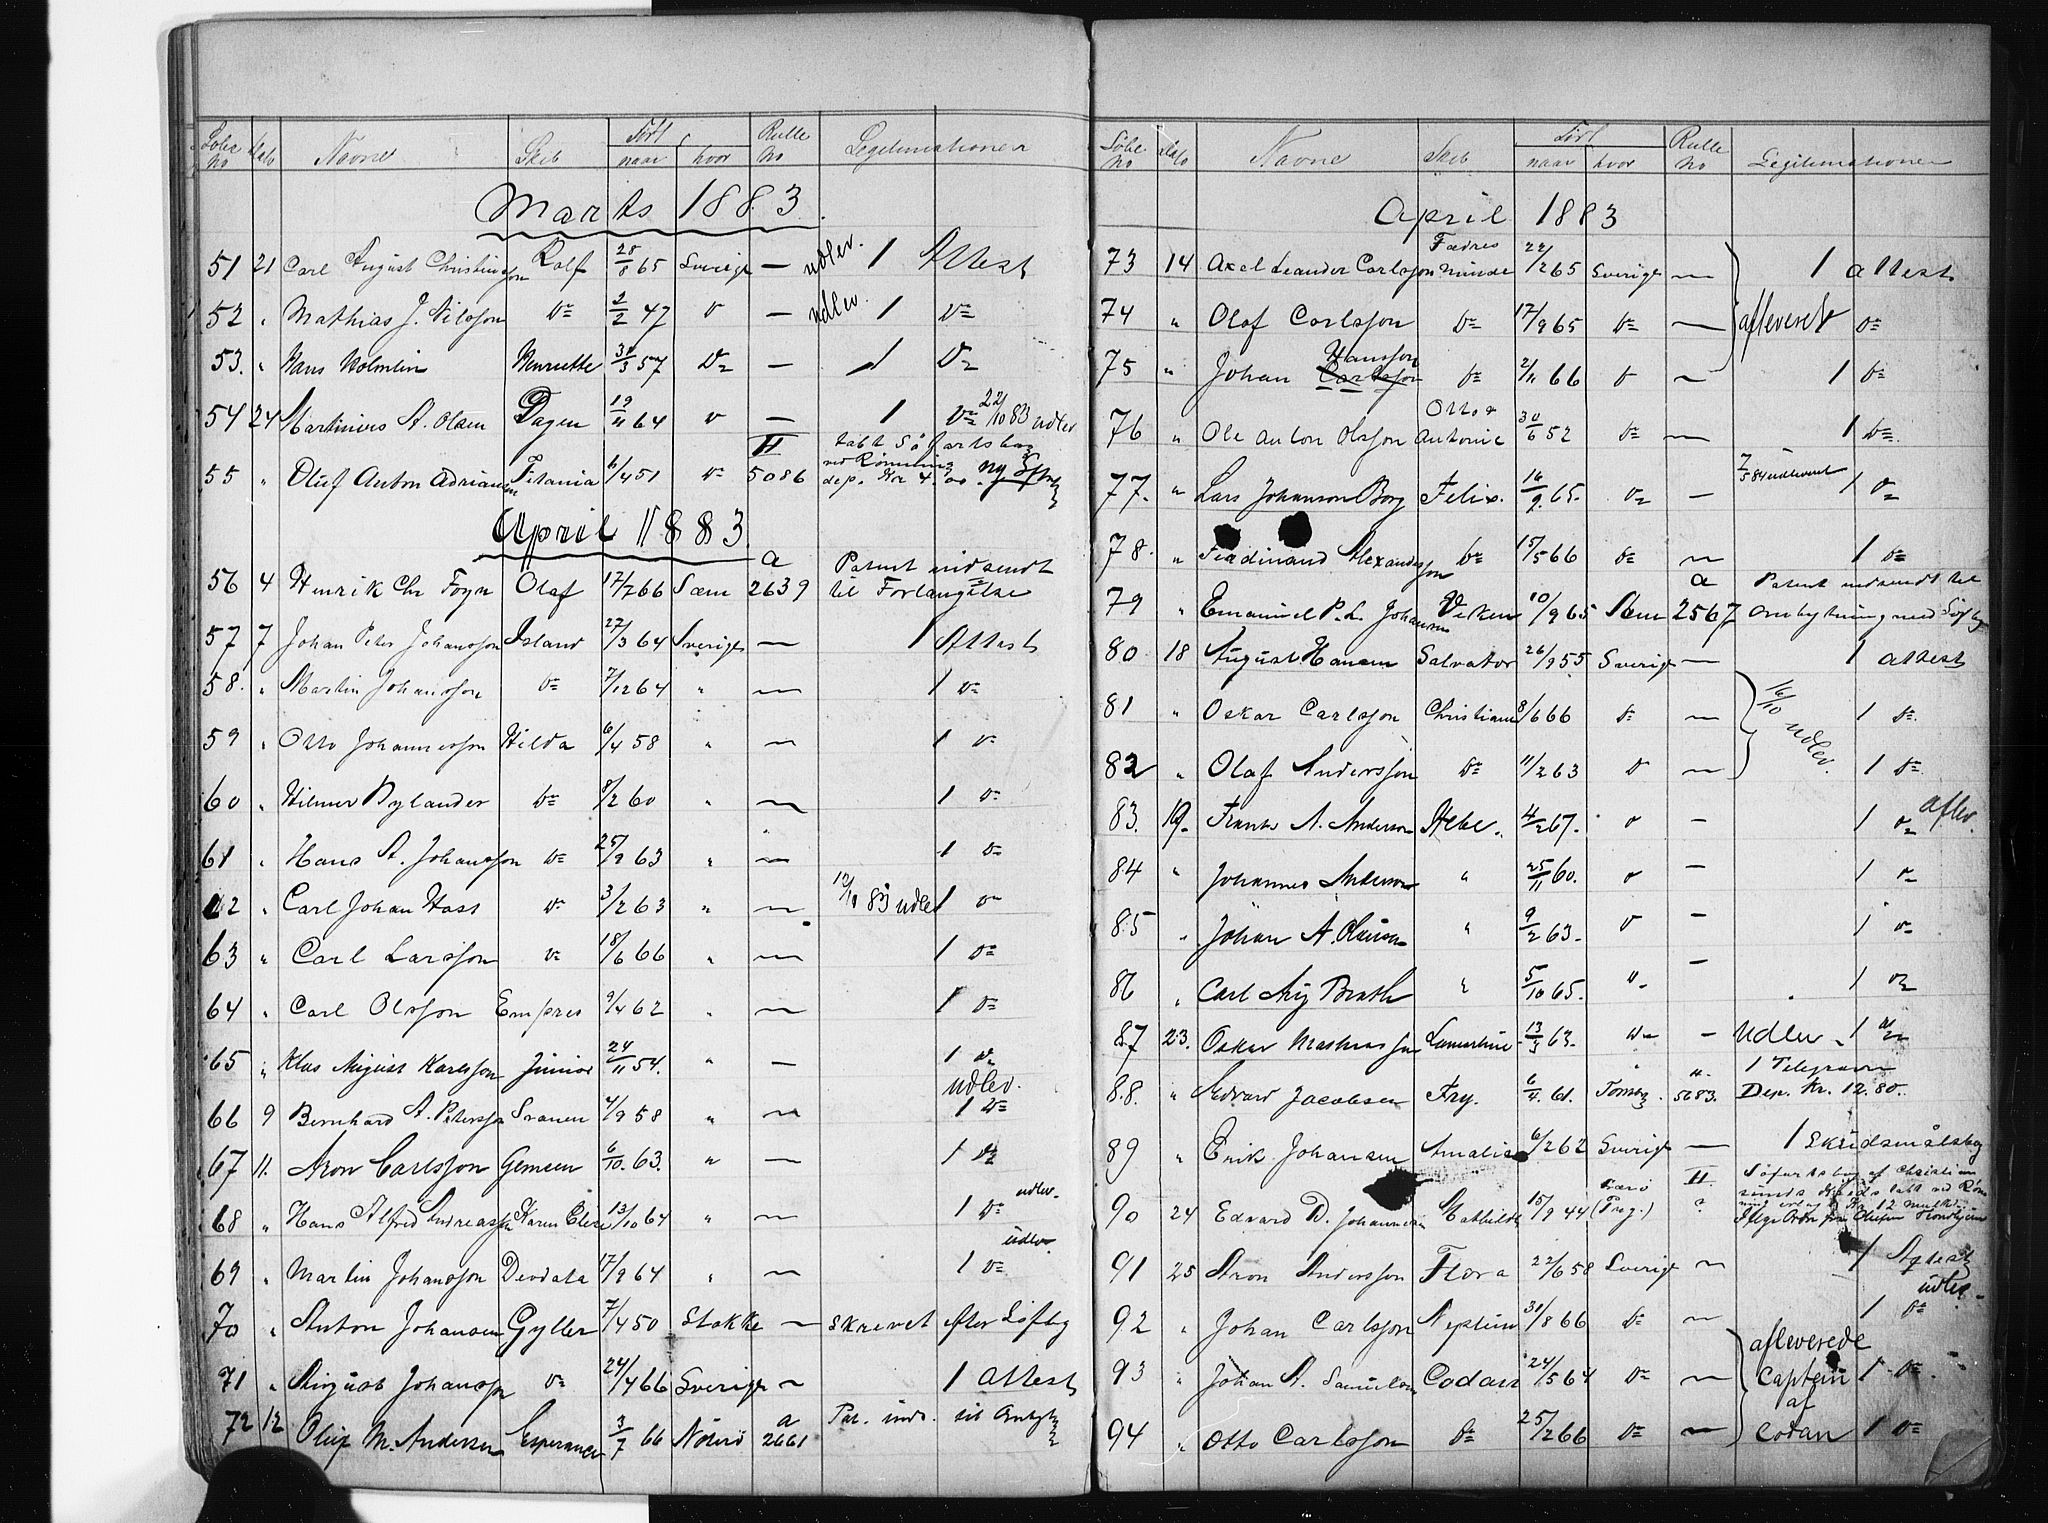 Løbe no Dato Navne Skib Født naar hvor Rulle no Legitimationer
Marts 1883
51 21 Carl August Christiansson Rolf 28/8 65 Sverige — udlev. 1 Attest
52 " Mathias J. Nilsson Do 2/2 47 Do — udlev. 1 Do
53. " Hans Holmlin Henriette 30/3 57 Do — 1 Do
54 24 Martinius A. Olsen Dagen 19/11 64 Do — 1 Do 22/10 83 udlev
55 " Oluf Anton Adriansen Titania 6/4 51 Do II 5086 tabt Søfartsbog
dep. Kr 4.00.
April 1883
56 4 Henrik Chr Foyn Olaf 17/7 66 Sæm a 2639 Patent indsendt
til Forlængelse
57 7 Johan Peter Johansson Island 27/3 64 Sverige — 1 Attest
58. " Martin Johansson Do 7/12 64 " — 1 Do
59 " Otto Johannesson Hilda 6/4 58 " — 1 Do
60 " Hilmer Bylander Do 8/2 60 " — 1 Do
61 " Hans A. Johansson Do 25/9 63 " — 1 Do
62 " Carl Johan Hass Do 3/2 63 " — 12/10 83 udlev 1 Do
63 " Carl Larsson Do 18/6 66 " — 1 Do
64 " Carl Olsson Empres 9/4 62 " — 1 Do
65 " Klas August Karlsson Junior 24/11 54. " — 1 Do
udlev.
66 9 Bernhard A. Petersson Svanen 4/9 58 " — 1 Do
67 11. Aron Carlsson Gemsen 6/10. 63. " — 1 Do
68 " Hans Alfred Andreasson Karen Elise 13/10 64 " — 1 Do udlev.
69 " Martin Johansson Deodata 17/9 64 " — 1 Do udlev.
70 " Anton Johansen Gyller 7/4 50 Stokke — skrevet efter Søftbg
71 " August Johansson Do 24/4 66 Sverige — 1 Attest
72 12 Oluf M. Andersen Esperance 3/7 66 Nøterø a 2661 Pat. inds. til
Løbe no Dato Navne Skib Født naar hvor Rulle no Legitimationer
April 1883
73 14 Axel Leander Carlsson Fædres minde 22/2 65 Sverige — 1 Attest
74 " Olof Carlsson Do 17/9 65 Do — afleveret Do
75 " Johan Carlsson Hansson Do 2/11 66 Do — 1 Do
76 " Ole Anton Olsson Otto & Antonie 30/6 52 Do — 1 Do
77. " Lars Johanson Borg Felix. 16/9. 65. Do — 7/5 84 udleveret 1 Do
78. " Ferdinand Alexandersson Do 15/5 66 Do — 1 Do
79 " Emanuel P. L. Johansen Viken 10/9 65 Sem a 2567 Patent indsendt til
Ombytning med Søftbg
80 18 August Hansen Salvator 26/9 55 Sverige — 1 Attest
81 " Oskar Carlsson Christiane 8/6 66 Do — 16/10 udlev. 1 Do
82 " Olaf Andersson Do 11/2 63 Do — 1 Do
83. 19. Frants A. Anderson Hebe. 4/2 67. Do — 1 Do aflev.
84 " Johannes Anderson " 25/11 60. Do — 1 Do
85 " Johan A. " 9/2 63. Do — 1 Do
86 " Carl Aug Brath " 5/10 65. Do — 1 Do
87 23. Oskar Mathiasson 13/3 63. Do — Udlev. 1 Do
88. " Edvard Jacobsen Fry. 6/4. 61. Tønsbg. II. 5683. 1 Telegram
Dep. Kr. 12.80.
89 " Erik Johansen Amalia 6/2 62 Sverige — 1 Skudsmålsbog
90 24 Edvard D. Johannesen Mathilde 15/9 44 II. ? Søfartsbog af Christian
sunds
91 25 Aron Andersson Flora 22/6 58 Sverige — 1 Attest
udlev.
92 " Johan Carlsson Neptun 31/8 66 Do — 1 Do
93 " Johan A. Samuelson Codan 24/5 64 Do — afleverede Captein 1 Do
94 " Otto Carlsson Do 25/2 66 Do — af Codan 1 Do